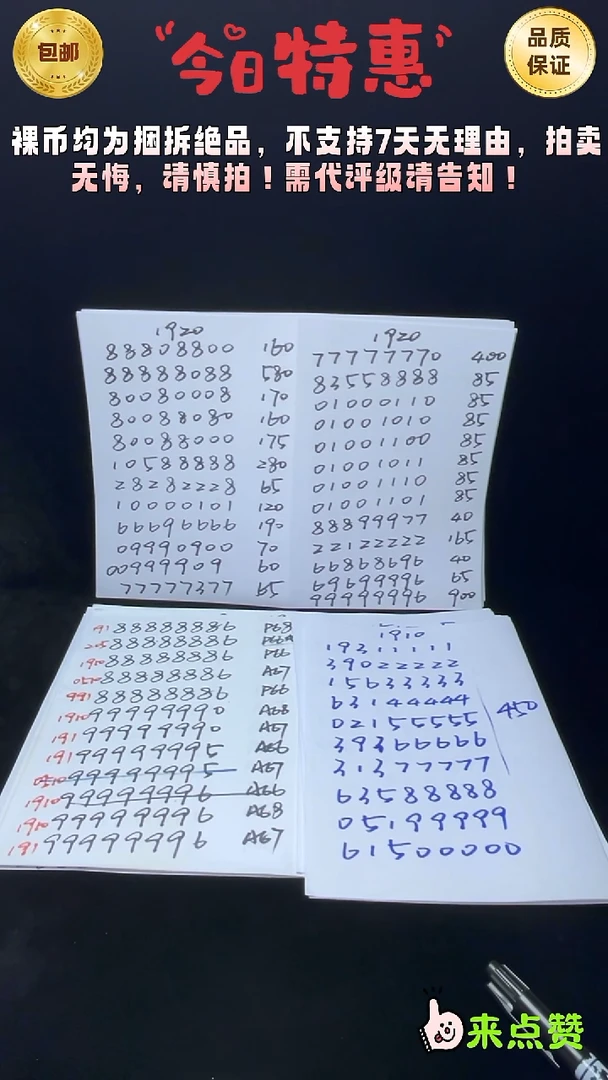 包邮
今日特惠
品质
保证
裸币均为捆拆绝品，不支持7天无理由，拍卖
无悔，请慎拍！需代评级请告知！
1920
88808800 160
88888088 580
80080008 170
80088080 160
80088000 175
10588888 280
28282228 65
10000101 120
66696666 190
09990900 70
00999909 60
77777377 65
1920
77777770 400
83558888 85
01000110 85
01001010 85
01001100 85
01001011 85
01001110 85
01001101 85
88899977 40
22122222 165
66868696 40
69699996 65
99999996 900
191 88888886 P68
205 88888886
1910 88888886 P66
0510 88888886 A67
991 88888886 P66
1910 99999990 A68
191 99999990 A67
191 99999995 A66
0510 99999995 A67
1910 99999996 A66
1910 99999996 A68
191 99999996 A67
1910
19311111
39022222
15633333
63144444
02155555 450
39366666
31377777
63588888
05199999
61500000
来点赞